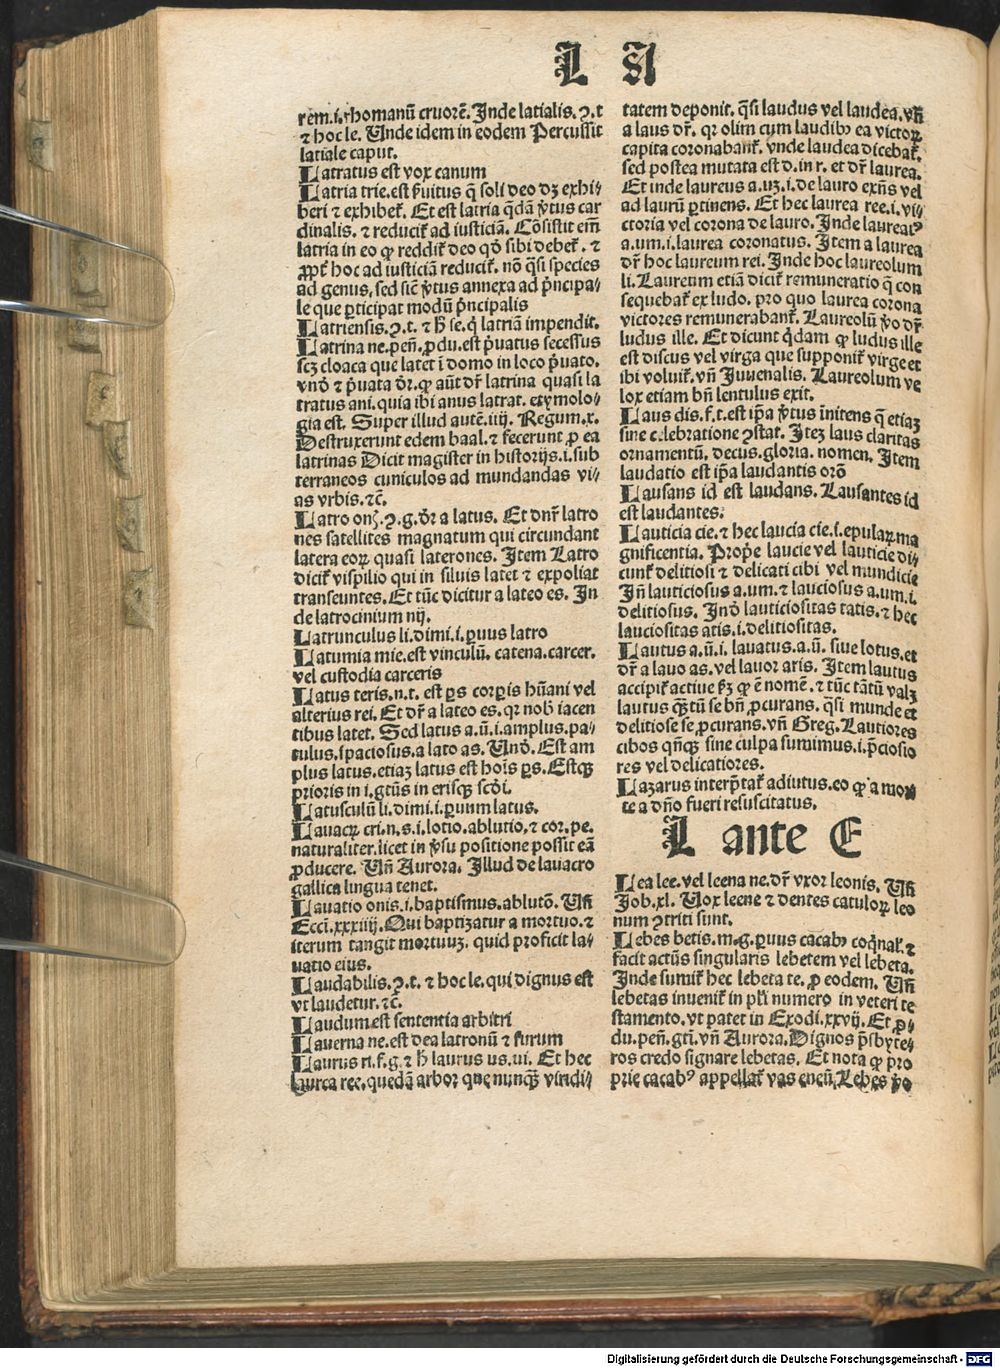 L A
rem.i.rhomanū cruorē. Inde latialis.ꝛ.t
⁊ hoc le. Unde idem in eodem Percussit
latiale caput.
Latratus est vox canum
Latria trie.est ßuitus q̄ soli deo dꝫ exhi⸗
beri ⁊ exhibet̃. Et est latria q̄dā ꝟtus car
dinalis. ⁊ reducit̃ ad iusticiā. Cōsistit em̄
latria in eo ꝙ reddit̃ deo qđ sibi debet̃. ⁊
ꝓpt̃ hoc ad iusticiā reducit̃. nō q̄si species
ad genus, sed sic̄ ꝟtus annexa ad p̄ncipa⸗
le que ꝑticipat modū p̄ncipalis
Latriensis.ꝛ.t. ⁊ h̄ se.q̇ latriā impendit.
Latrina ne.pen̄.ꝓdu.est p̄uatus secessus
scꝫ cloaca que latet ī domo in loco p̄uato.
vnđ ⁊ p̄uata đr.ꝙ aūt dr̄ latrina quasi la
tratus ani.quia ibi anus latrat. etymolo⸗
gia est. Super illud autē.iiij. Regum.x.
Destruxerunt edem baal.⁊ fecerunt ꝓ ea
latrinas Dicit magister in historijs.i.sub
terraneos cuniculos ad mundandas vi⸗
as vrbis.⁊c̄.
Latro onꝭ.ꝛ.g.đr a latus. Et dn̄r latro
nes satellites magnatum qui circundant
latera eoꝝ quasi laterones. Item Latro
dicit̃ vispilio qui in siluis latet ⁊ expoliat
transeuntes. Et tūc dicitur a lateo es. In
de latrocinium nij.
Latrunculus li.dimi.i.ꝑuus latro
Latumia mie.est vinculū. catena.carcer.
vel custodia carceris
Latus teris.n.t. est ꝑs corꝑis hūani vel
alterius rei. Et dr̄ a lateo es.qꝛ nob̄ iacen
tibus latet. Sed latus a.ū.i.amplus.pa⸗
tulus.spaciosus.a lato as. Unđ. Est am
plus latus.etiaꝫ latus est hoīs ꝑs. Estqꝫ
prioris in i.gtūs in erisqꝫ scđi.
Latusculū li.dimi.i.ꝑuum latus.
Lauacꝝ cri.n.s.i.lotio.ablutio.⁊ cor.pe.
naturaliter.licet in ꝟsu positione possit eā
ꝓducere. Un̄ Aurora. Illud de lauacro
gallica lingua tenet.
Lauatio onis.i.baptismus.ablutō. Un̄
Eccī.xxxiiij. Qui baptizatur a mortuo.⁊
iterum tangit mortuuꝫ. quid proficit la⸗
uatio eius.
Laudabilis.ꝛ.t. ⁊ hoc le.qui dignus est
vt laudetur.⁊c̄.
Laudum.est sententia arbitri
Lauerna ne.est dea latronū ⁊ furum
Laurus ri.f.g.⁊ h̄ laurus us.ui. Et hec
laurea ree.quedā arbor que nunqꝫ viridi⸗
tatem deponit. q̄si laudus vel laudea.vn̄
a laus dr̄. qꝛ olim cum laudibꝫ ea victoꝝ
capita coronabant̃. vnde laudea dicebat̃.
sed postea mutata est d.in r. et dr̄ laurea.
Et inde laureus a.uꝫ.i.de lauro exn̄s vel
ad laurū ꝑtinens. Et hec laurea ree.i.vi⸗
ctoria vel corona de lauro. Inde laureatꝰ
a.um.i.laurea coronatus. Item a laurea
dr̄ hoc laureum rei. Inde hoc laureolum
li. Laureum etiā dicit̃ remuneratio q̄ con
sequebat̃ ex ludo. pro quo laurea corona
victores remunerabant̃. Laureolū ꝟo dr̄
ludus ille. Et dicunt q̇dam ꝙ ludus ille
est discus vel virga que supponit̃ virge et
ibi voluit̃. vn̄ Juuenalis. Laureolum ve
lox etiam bn̄ lentulus exit.
Laus dis.f.t.est ip̄a ꝟtus īnitens q̄ etiaꝫ
sine celebratione ꝯstat. Iteꝫ laus claritas
ornamentū. decus.gloria. nomen. Item
laudatio est ip̄a laudantis orō
Lausans id est laudans. Lausantes id
est laudantes.
Lauticia cie.⁊ hec laucia cie.i.epulaꝝ ma
gnificentia. Prop̄e laucie vel lauticie di⸗
cunt̃ delitiosi ⁊ delicati cibi vel mundicie
In̄ lauticiosus a.um.⁊ lauciosus a.um.i.
delitiosus. Inđ lauticiositas tatis.⁊ hec
lauciositas atis.i.delitiositas.
Lautus a.ū.i. lauatus.a.ū. siue lotus.et
dr̄ a lauo as.vel lauor aris. Item lautus
accipit̃ actiue ẜꝫ ꝙ ē nomē.⁊ tūc tātū valꝫ
lautus qꝫtū se bn̄ ꝓcurans. q̄si munde et
delitiose se ꝓcurans.vn̄ Greg. Lautiores
cibos qn̄qꝫ sine culpa sumimus.i.p̄ciosio
res vel delicatiores.
Lazarus interp̄tat̃ adiutus.eo ꝙ a mor
te a dn̄o fueri resuscitatus.
L ante E
Lea lee.vel leena ne.dr̄ vxor leonis. Un̄
Job.xl. Uox leene ⁊ dentes catuloꝝ leo
num ꝯtriti sunt.
Lebes betis.m.g.ꝑuus cacabꝰ coq̄nal̄.⁊
facit actūs singularis lebetem vel lebeta.
Inde sumit̃ hec lebeta te. ꝓ eodem. Un̄
lebetas inuenit̃ in pl̄i numero in veteri te
stamento.vt patet in Exodi.xxvij. Et ꝓ⸗
du.pen̄.gtī.vn̄ Aurora. Dignos p̄sbyte⸗
ros credo signare lebetas. Et nota ꝙ pro
prie cacabꝰ appellat̃ vas eneū. Lebes ꝟo
Digitalisierung gefördert durch die Deutsche Forschungsgemeinschaft - DFG